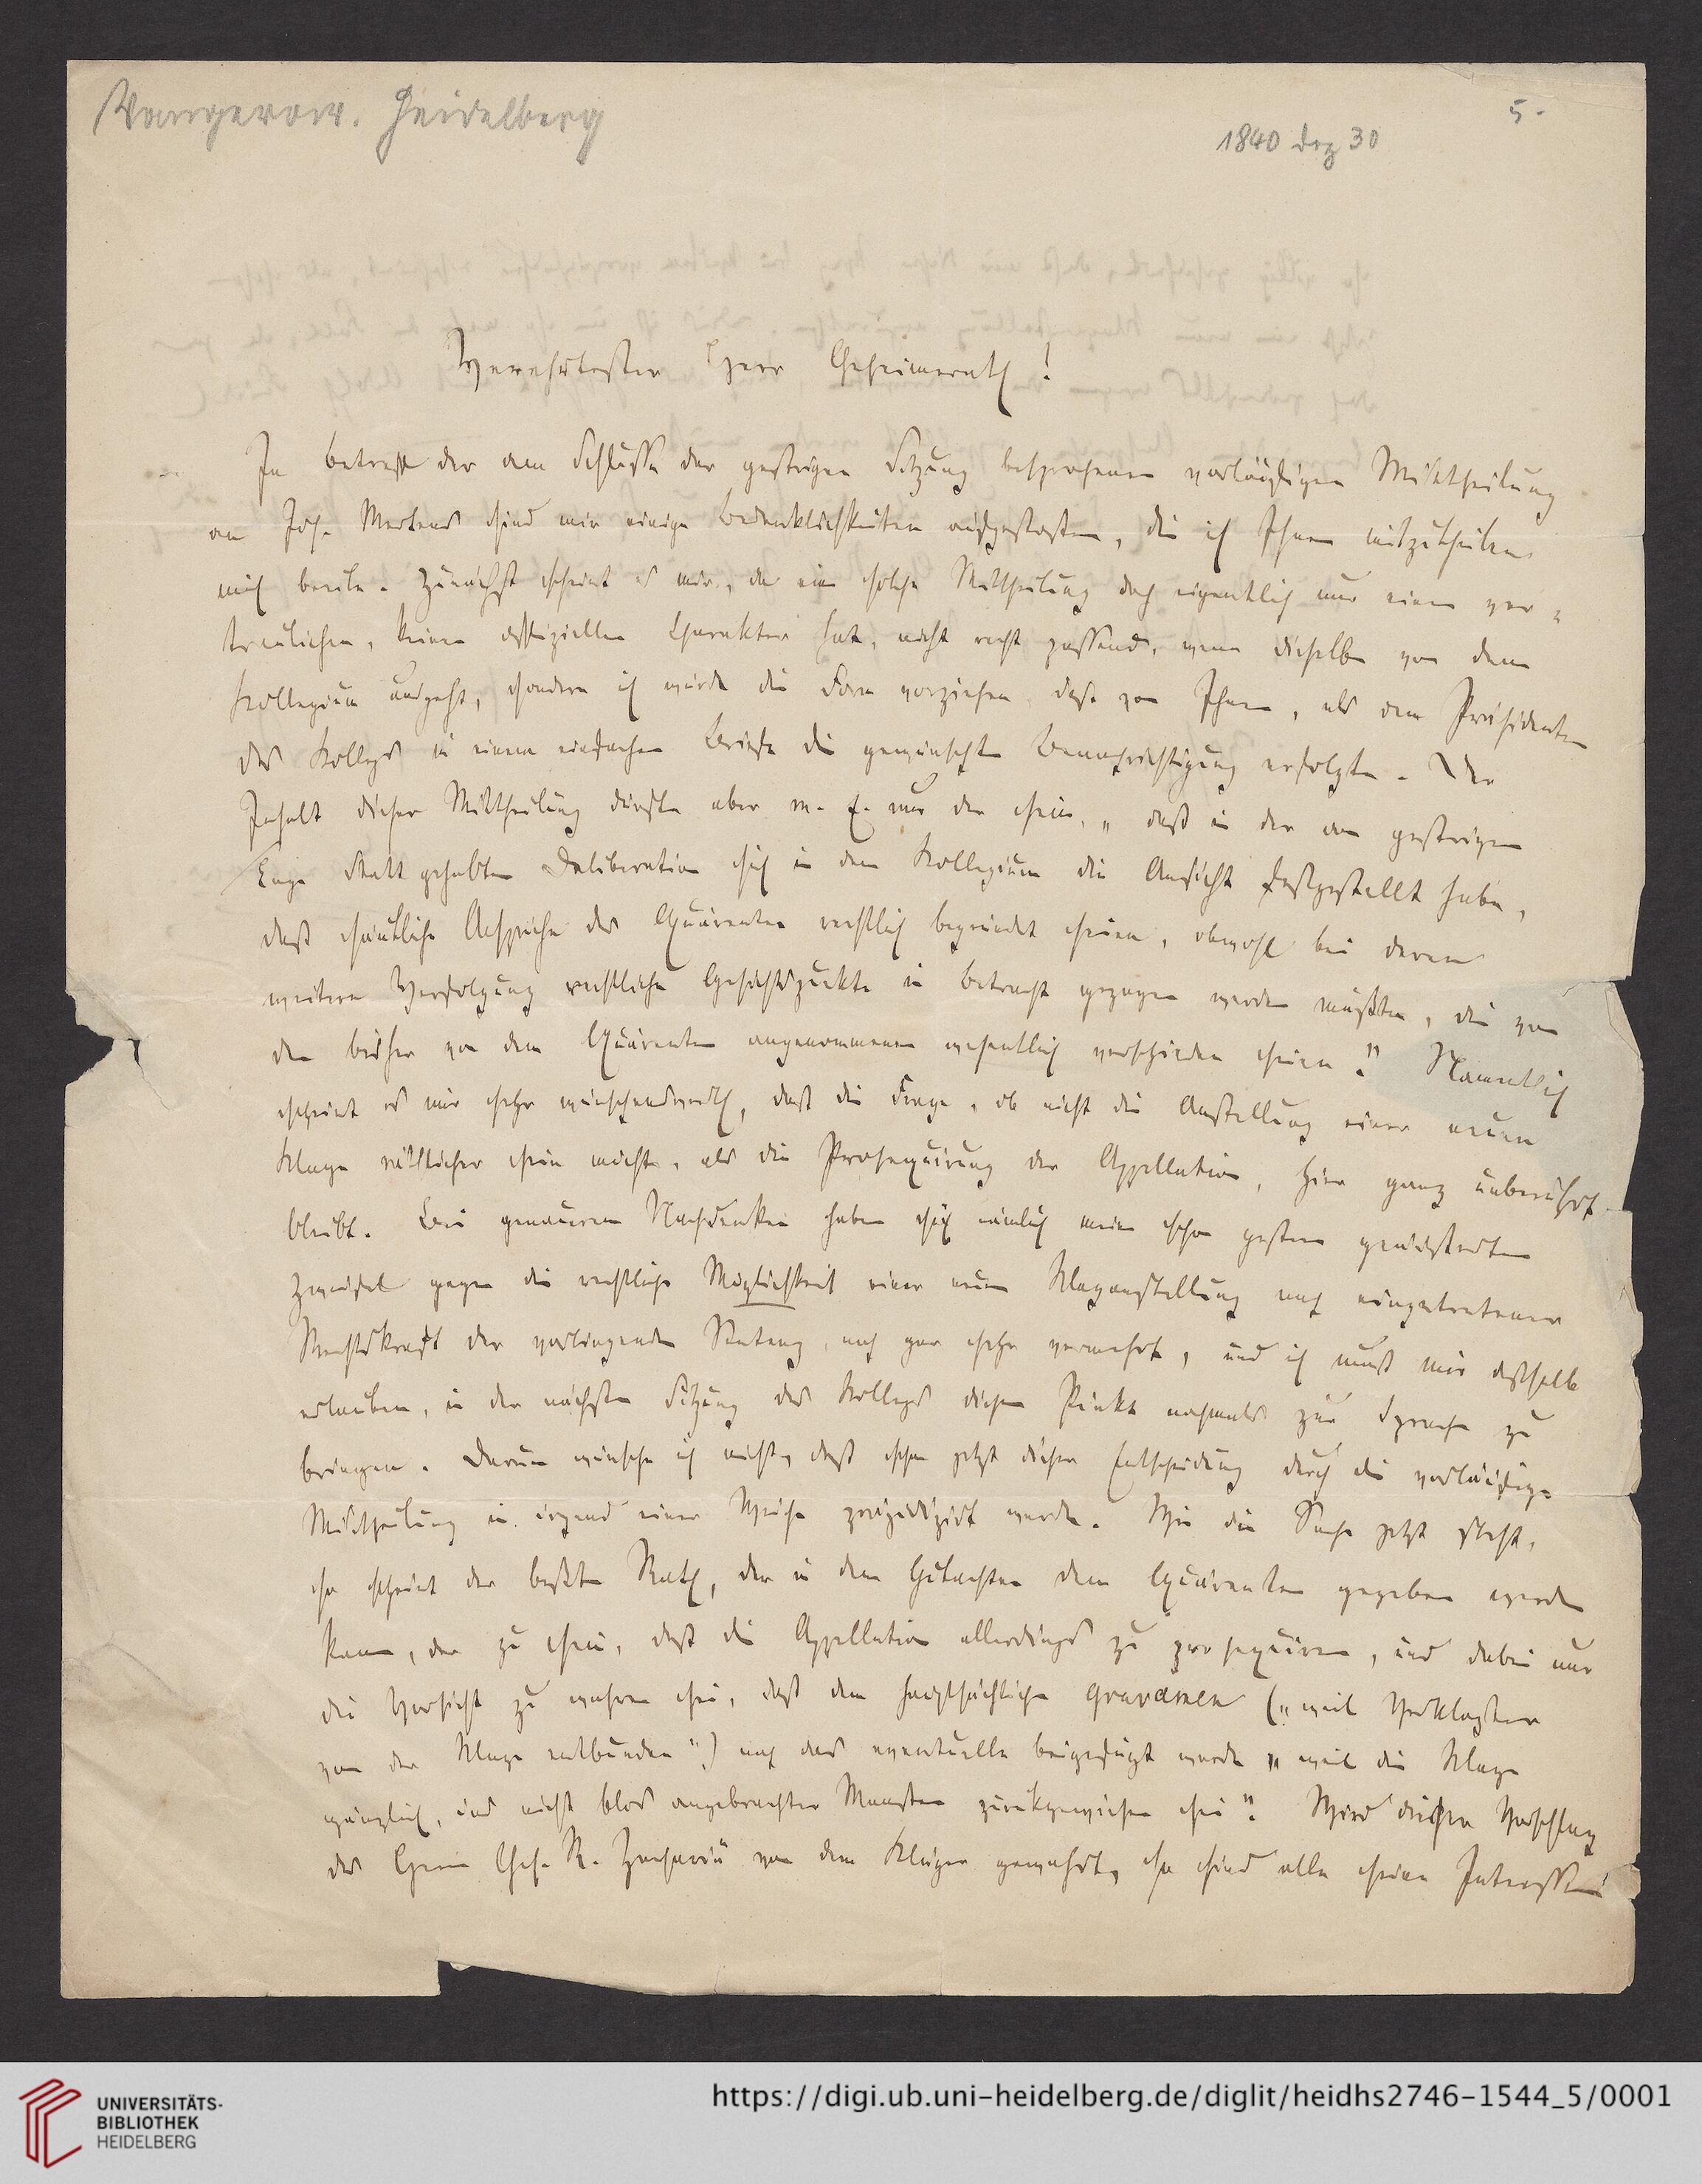 Vangerow. Heidelberg
5.
1840 Dez 30
Verehrtester Herr Geheimerath!
In Betreff der am Schlusse der gestrigen Sitzung besprochenen vorläufigen Mittheilung
an Joh. Mertens sind mir einige Bedenklichkeiten aufgestoßen, die ich Ihnen mitzutheilen
mich beeile. Zunächst scheint es mir, da eine solche Mittheilung doch eigentlich nur einen ver-
traulichen, keinen offiziellen Charakter hat, nicht recht passend, wenn dieselbe von dem
Kollegium ausgeht, sondern ich würde die Form vorziehen, daß von Ihnen, als dem Präsidenten
des Kollegs in einem einfachen Briefe die gewünschte Benachrichtigung erfolgte. Der
Inhalt dieser Mittheilung dürfte aber m. E. nur der sein, „daß in der am gestrigen
Tage statt gehabten Deliberation sich in dem Kollegium die Ansicht festgestellt habe,
daß sämtliche Ansprüche des Quärenten rechtlich begründet seien, obwohl bei deren
weitern Verfolgung rechtliche Gesichtspunkte in Betracht gezogen werden müßten, die von
den bisher von dem Quärenten angenommenen wesentlich verschieden seien." Namentlich
scheint es mir sehr wünschenswerth, daß die Frage, ob nicht die Anstellung einer neuen
Klage räthlicher sein möchte, als die Prosequirung der Appellation, hier ganz unberührt
bleibt. Bei genauerem Nachdenken haben sich nämlich meine schon gestern geäußerten
Zweifel gegen die rechtliche Möglichkeit einer neuen Klaganstellung nach eingetretener
Rechtskraft der vorliegenden Sentenz, noch gar sehr vermehrt, und ich muß mir deßhalb
erlauben, in der nächsten Sitzung des Kollegs diesen Punkt nochmals zur Sprache zu
bringen. Darum wünsche ich nicht, daß schon jetzt dieser Entscheidung durch die vorläufige
Mittheilung in irgend einer Weise präjudizirt werde. Wie die Sache jetzt steht,
so scheint der beßte Rath, der in dem Gutachten dem Quärenten gegeben werden
kann, der zu sein, daß die Appellation allerdings zu prosequiren, und dabei nur
die Vorsicht zu wahren sei, daß dem hauptsächlichen Gravamen („weil Verklagter
von der Klage entbunden") noch das eventuelle beigefügt werde „weil die Klage
gänzlich, und nicht blos angebrachter Maasten zurückgewiesen sei". Wird dieser Vorschlag
des Herrn Geh. R. Zachariä von dem Kläger gewahrt, so sind alle seine Interessen
UNIVERSITÄTS-
BIBLIOTHEK
HEIDELBERG
https://digi.ub.uni-heidelberg.de/diglit/heidhs2746-1544_5/0001